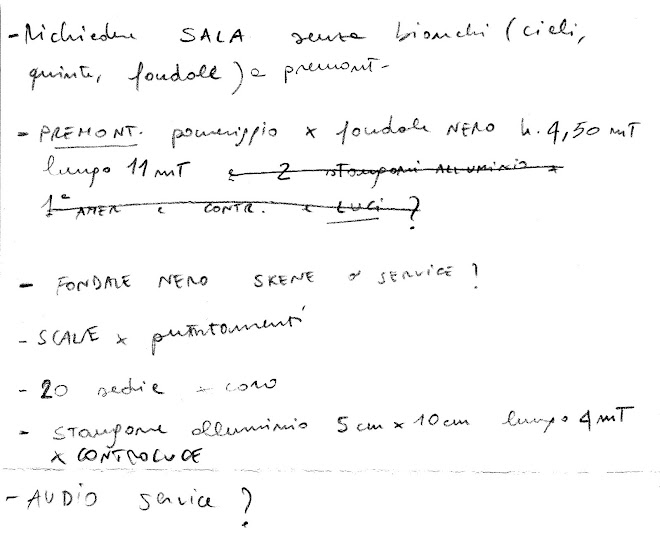 - Richiedere SALA senza bianchi (cieli,
quinte, fondale) e premont.
- PREMONT. pomeriggio x fondale NERO h. 4,50 mT
lungo 11 mT e 2 stangoni ALLUMINIO x
1ª AMER e CONTR. e LUCI ?
- FONDALE NERO SKENE o SERVICE ?
- SCALE x puntamenti
- 20 sedie coro
- STANGONE alluminio 5 cm x 10 cm lungo 4 mT
x CONTROLUCE
- AUDIO service ?